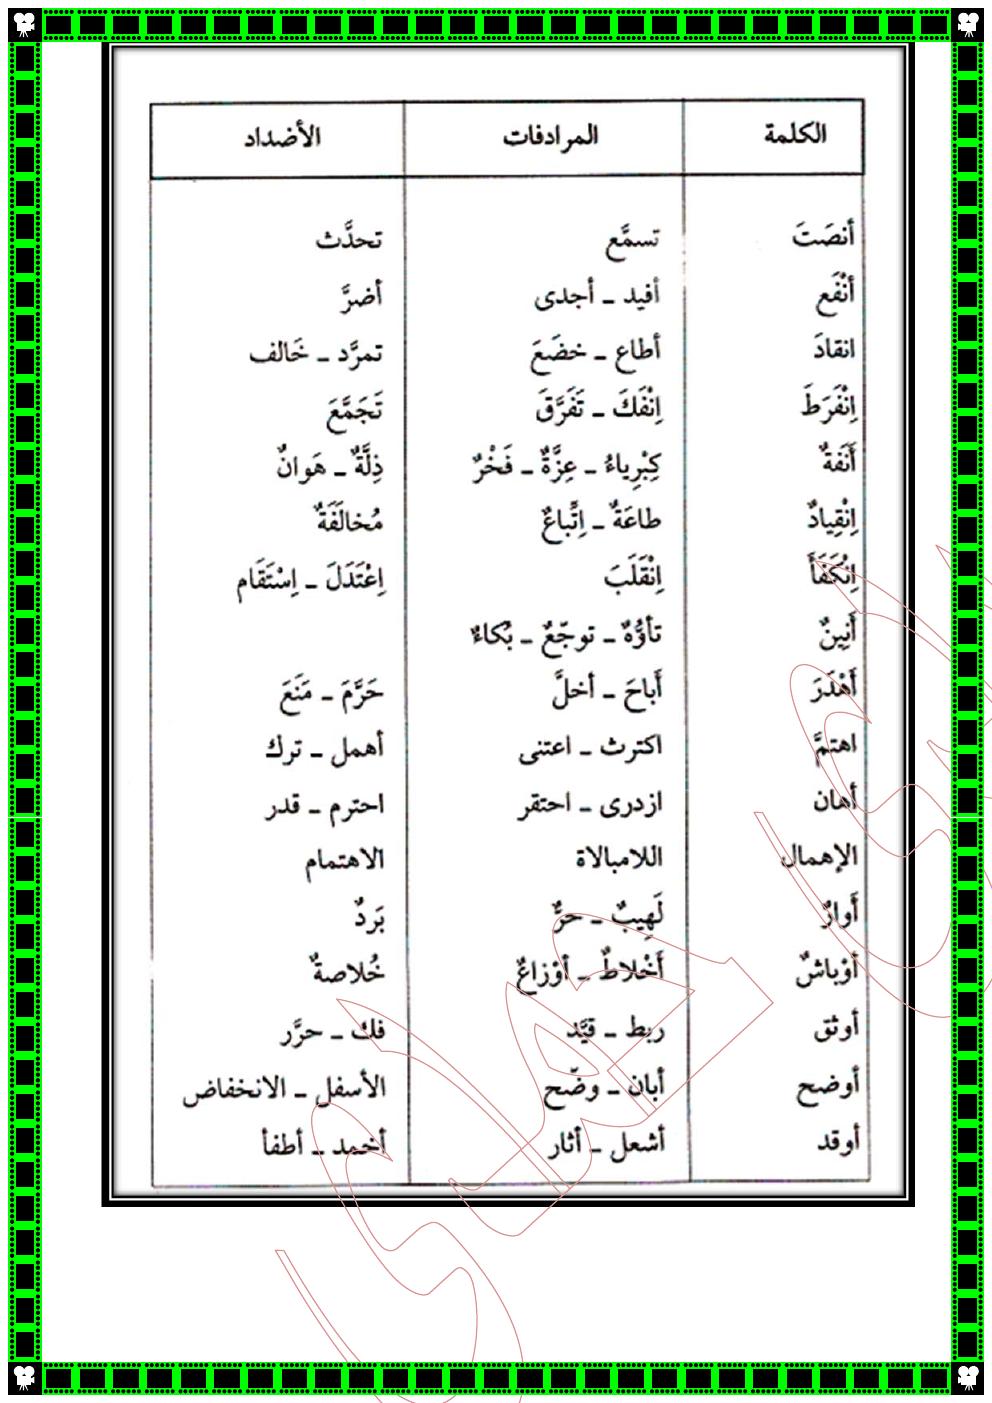 الكلمة المرادفات الأضداد
أنصَتَ تسمَّع تحدَّث
أنْفَع أفيد ـ أجدى أضرَّ
انقادَ أطاع ـ خضَعَ تمرَّد ـ خَالف
اِنْفَرَطَ اِنْفَكَ ـ تَفَرَّقَ تَجَمَّعَ
أَنَفةٌ كِبْرِياءُ ـ عِزَّةٌ ـ فَخْرٌ ذِلَّةٌ ـ هَوانٌ
اِنْقِيادٌ طاعَةٌ ـ اِتِّباعٌ مُخالَفَةٌ
اِنْكَفَأَ اِنْقَلَبَ اِعْتَدَلَ ـ اِسْتَقَام
أَنِينٌ تأوُّهٌ ـ توجّعٌ ـ بُكاءٌ
أَهْدَرَ أَباحَ ـ أخلَّ حَرَّمَ ـ مَنَعَ
اهتمَّ اكترث ـ اعتنى أهمل ـ ترك
أهان ازدرى ـ احتقر احترم ـ قدر
الإهمال اللامبالاة الاهتمام
أَوارٌ لَهِيبٌ ـ حرٌّ بَردٌ
أوْباشٌ أَخْلاطٌ ـ أوْزاعٌ خُلاصةٌ
أوثق ربط ـ قيَّد فك ـ حرَّر
أوضح أبان ـ وضّح الأسفل ـ الانخفاض
أوقد أشعل ـ أثار أخمد ـ أطفأ